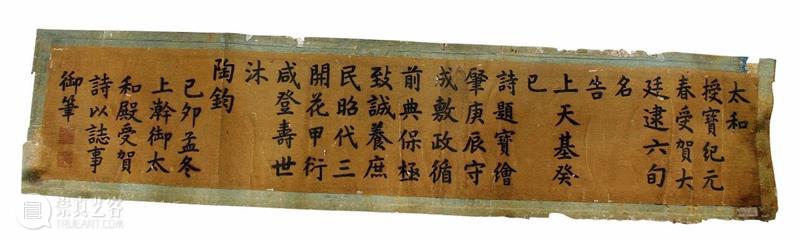 太和
授寶紀元
春受賀大
廷逮六旬
名
告
上天基癸
巳
詩題寶繪
肇庚辰守
成敷政循
前典保極
致誠養庶
民昭代三
開花甲衍
咸登壽世
沐
陶鈞
己卯孟冬
上澣御太
和殿受賀
詩以誌事
御筆
崇真艺客
TRUEART.COM